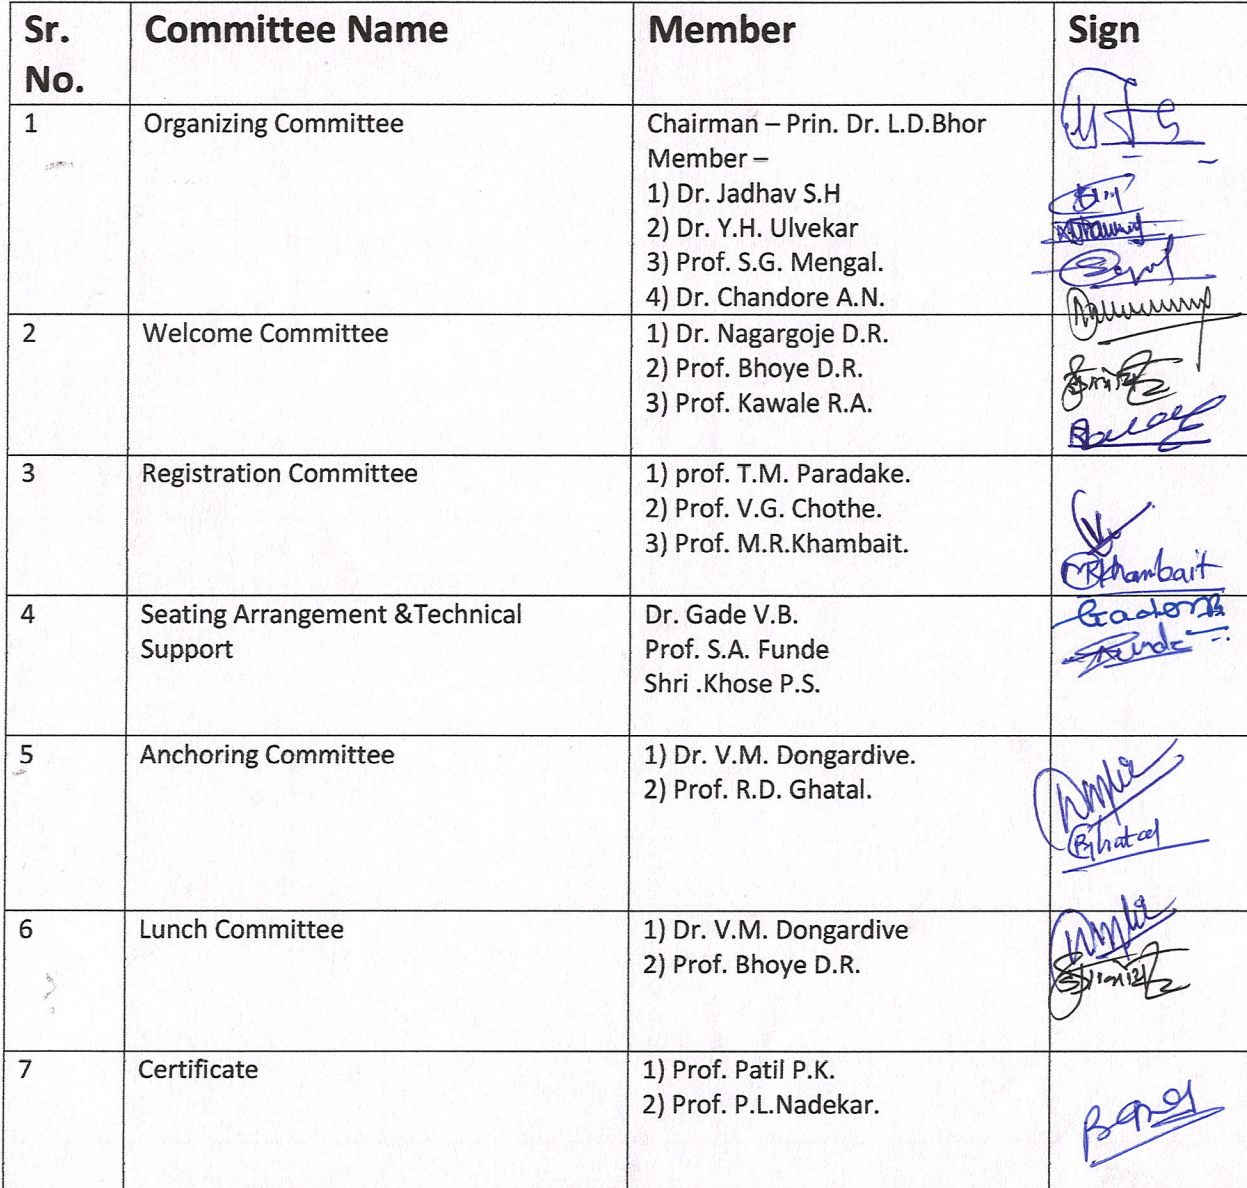 Sr. No. Committee Name Member Sign
1 Organizing Committee Chairman – Prin. Dr. L.D.Bhor
Member –
1) Dr. Jadhav S.H
2) Dr. Y.H. Ulvekar
3) Prof. S.G. Mengal.
4) Dr. Chandore A.N.
2 Welcome Committee 1) Dr. Nagargoje D.R.
2) Prof. Bhoye D.R.
3) Prof. Kawale R.A.
3 Registration Committee 1) prof. T.M. Paradake.
2) Prof. V.G. Chothe.
3) Prof. M.R.Khambait. MRKhambait
4 Seating Arrangement &Technical Support Dr. Gade V.B.
Prof. S.A. Funde Funde
Shri .Khose P.S.
5 Anchoring Committee 1) Dr. V.M. Dongardive.
2) Prof. R.D. Ghatal. Ghatal
6 Lunch Committee 1) Dr. V.M. Dongardive
2) Prof. Bhoye D.R.
7 Certificate 1) Prof. Patil P.K.
2) Prof. P.L.Nadekar.